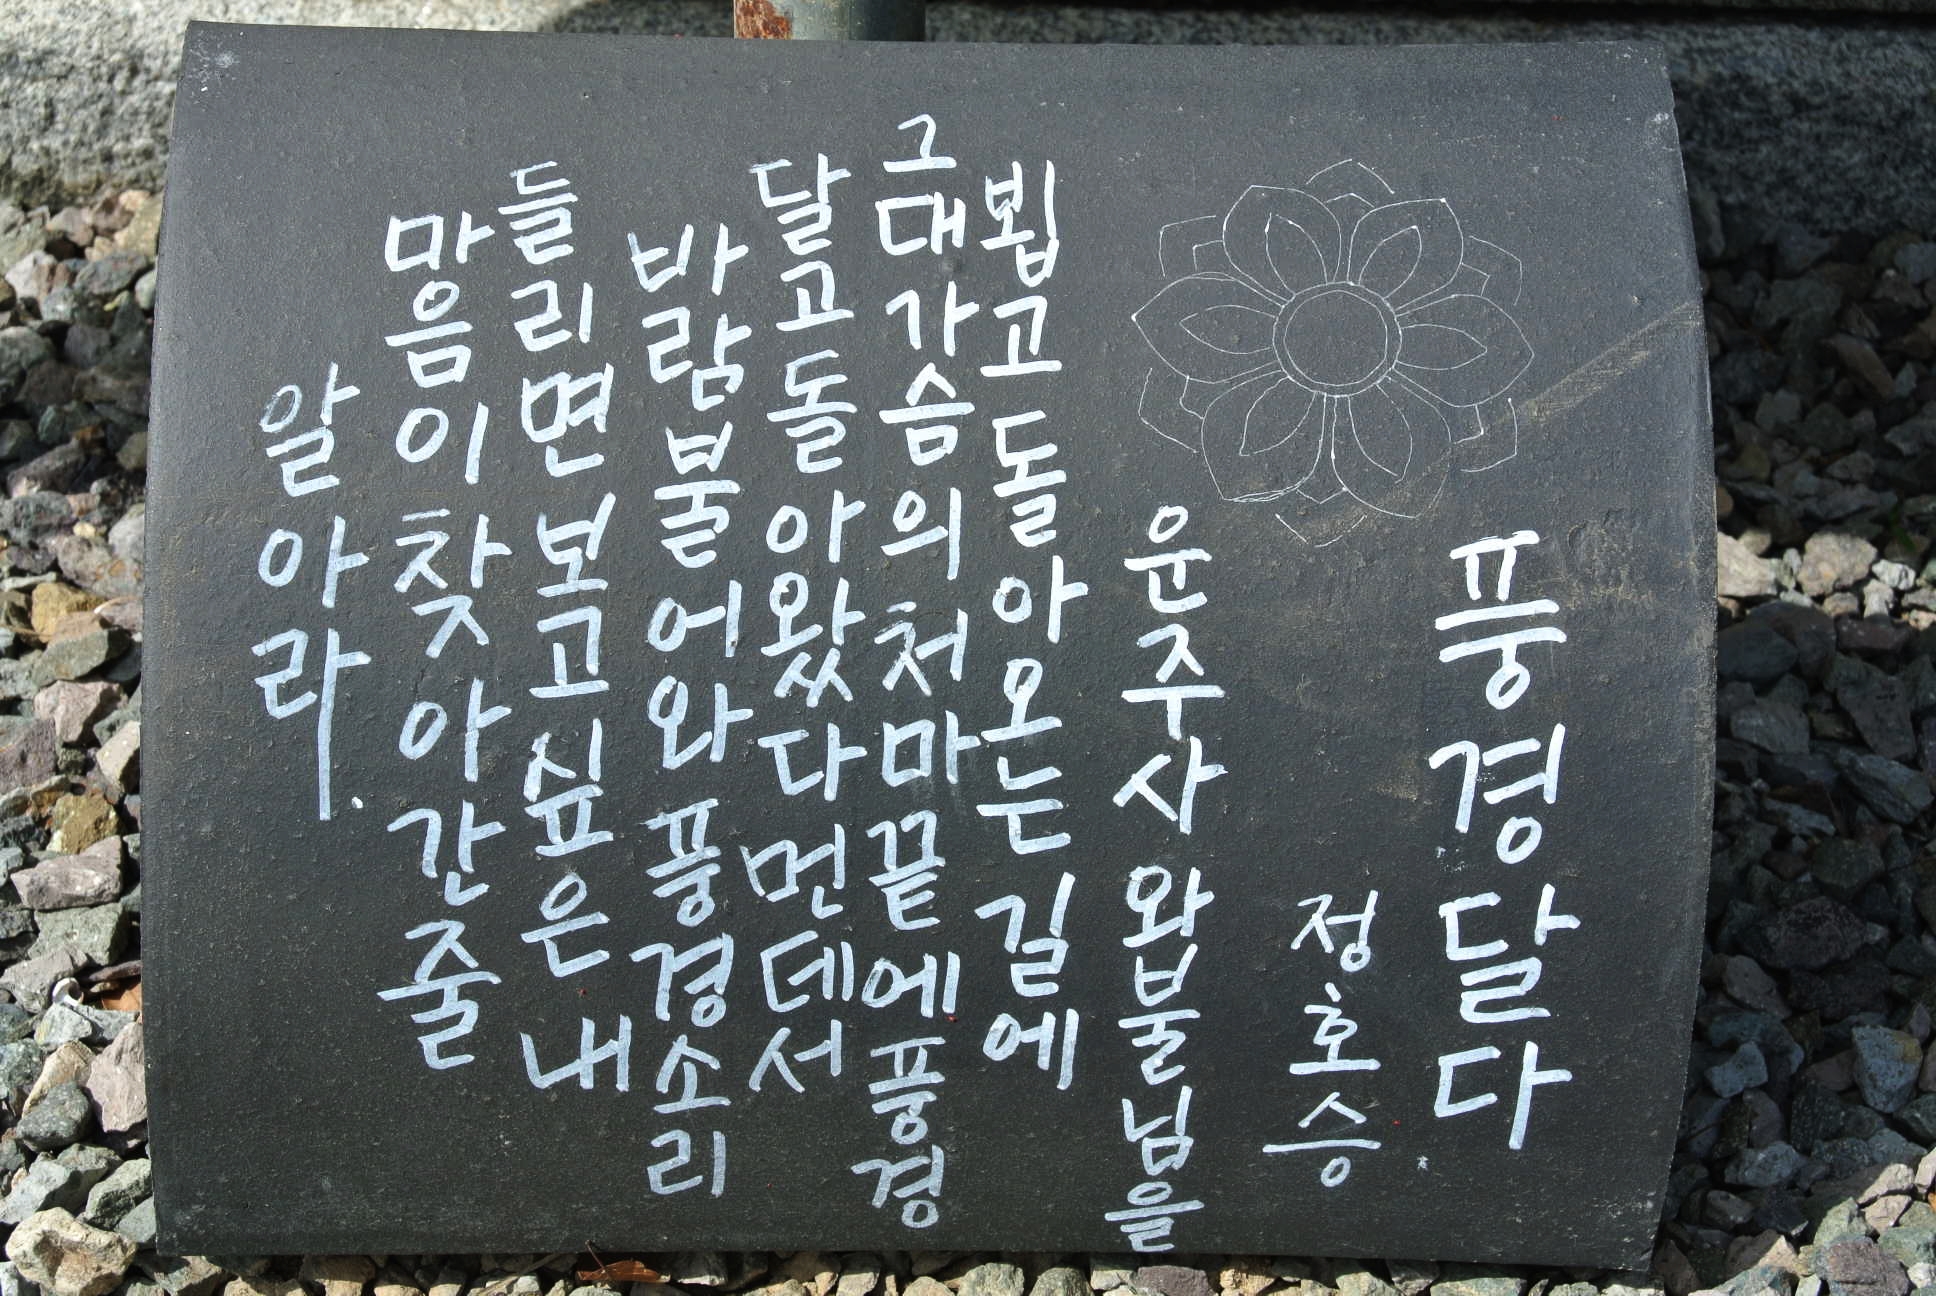 풍경달다
정호승
윤주사 와불님을
뵙고 돌아오는 길에
그대 가슴의 처마끝에 풍경
달고 돌아왔다 먼데서
바람 불어와 풍경소리
들리면 보고 싶은 내
마음이 찾아간 줄
알아라.